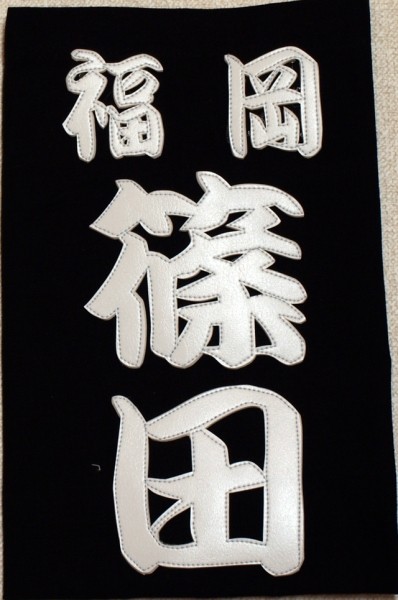 福岡
篠田